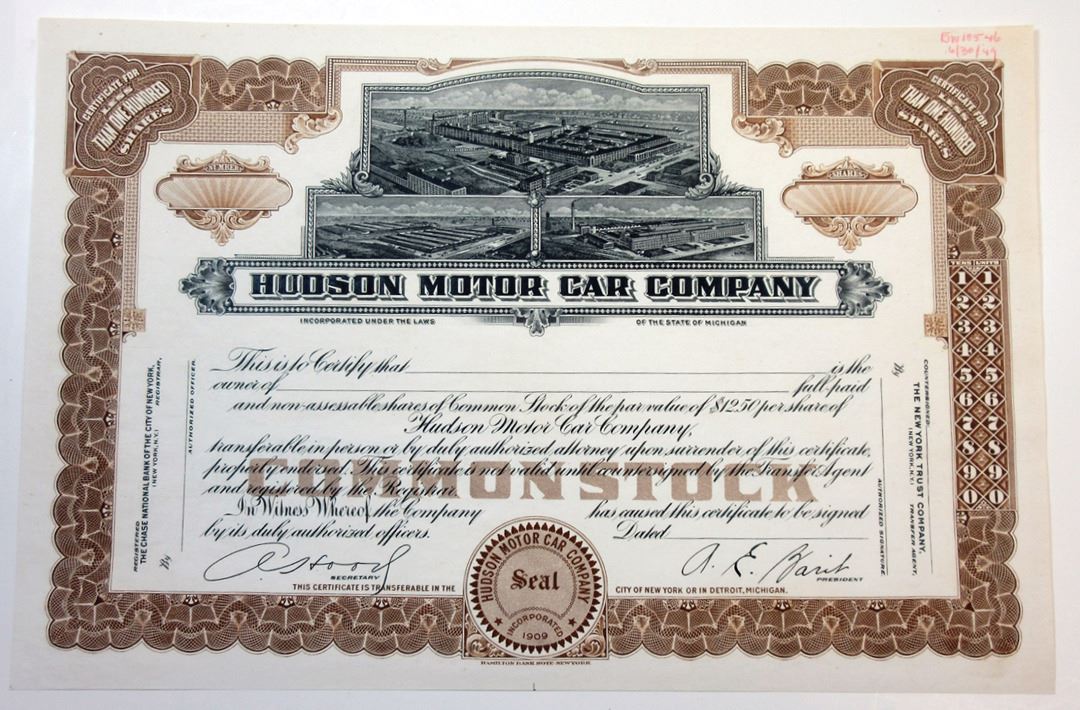 6/30/49
CERTIFICATE FOR
LESS
THAN ONE HUNDRED
SHARES
CERTIFICATE FOR
LESS
THAN ONE HUNDRED
SHARES
NUMBER
SHARES
HUDSON MOTOR CAR COMPANY
INCORPORATED UNDER THE LAWS OF THE STATE OF MICHIGAN
This is to Certify that is the
owner of full-paid
and non-assessable shares of Common Stock of the par value of $12.50 per share of
Hudson Motor Car Company,
transferable in person or by duly authorized attorney upon surrender of this certificate,
properly endorsed. This certificate is not valid until countersigned by the Transfer Agent
and registered by the Registrar.
COMMON STOCK
In Witness Whereof, the Company has caused this certificate to be signed
by its duly authorized officers. Dated
A. E. Barit
SECRETARY
PRESIDENT
THIS CERTIFICATE IS TRANSFERABLE IN THE CITY OF NEW YORK OR IN DETROIT, MICHIGAN.
HUDSON MOTOR CAR COMPANY
Seal
INCORPORATED
1909
HAMILTON BANK NOTE-NEW YORK
REGISTERED
THE CHASE NATIONAL BANK OF THE CITY OF NEW YORK,
(NEW YORK, N.Y.) REGISTRAR,
By
AUTHORIZED OFFICER.
COUNTERSIGNED:
THE NEW YORK TRUST COMPANY,
(NEW YORK, N.Y.) TRANSFER AGENT,
By
AUTHORIZED SIGNATURE
TENS UNITS
1 1
2 2
3 3
4 4
5 5
6 6
7 7
8 8
9 9
0 0